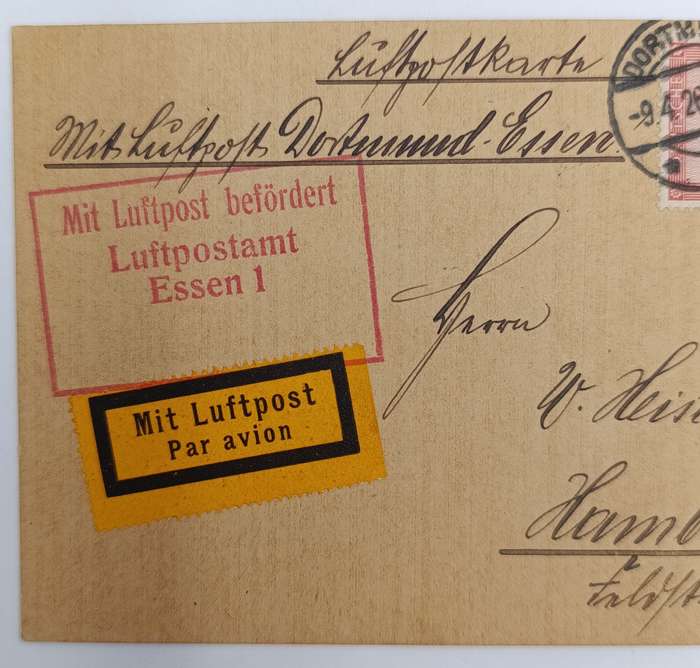 Luftpostkarte
Mit Luftpost Dortmund-Essen
DORTM
-9.4.26
Mit Luftpost befördert
Luftpostamt
Essen 1
Herrn
Mit Luftpost
Par avion
W. Heis
Hamb
Feldst